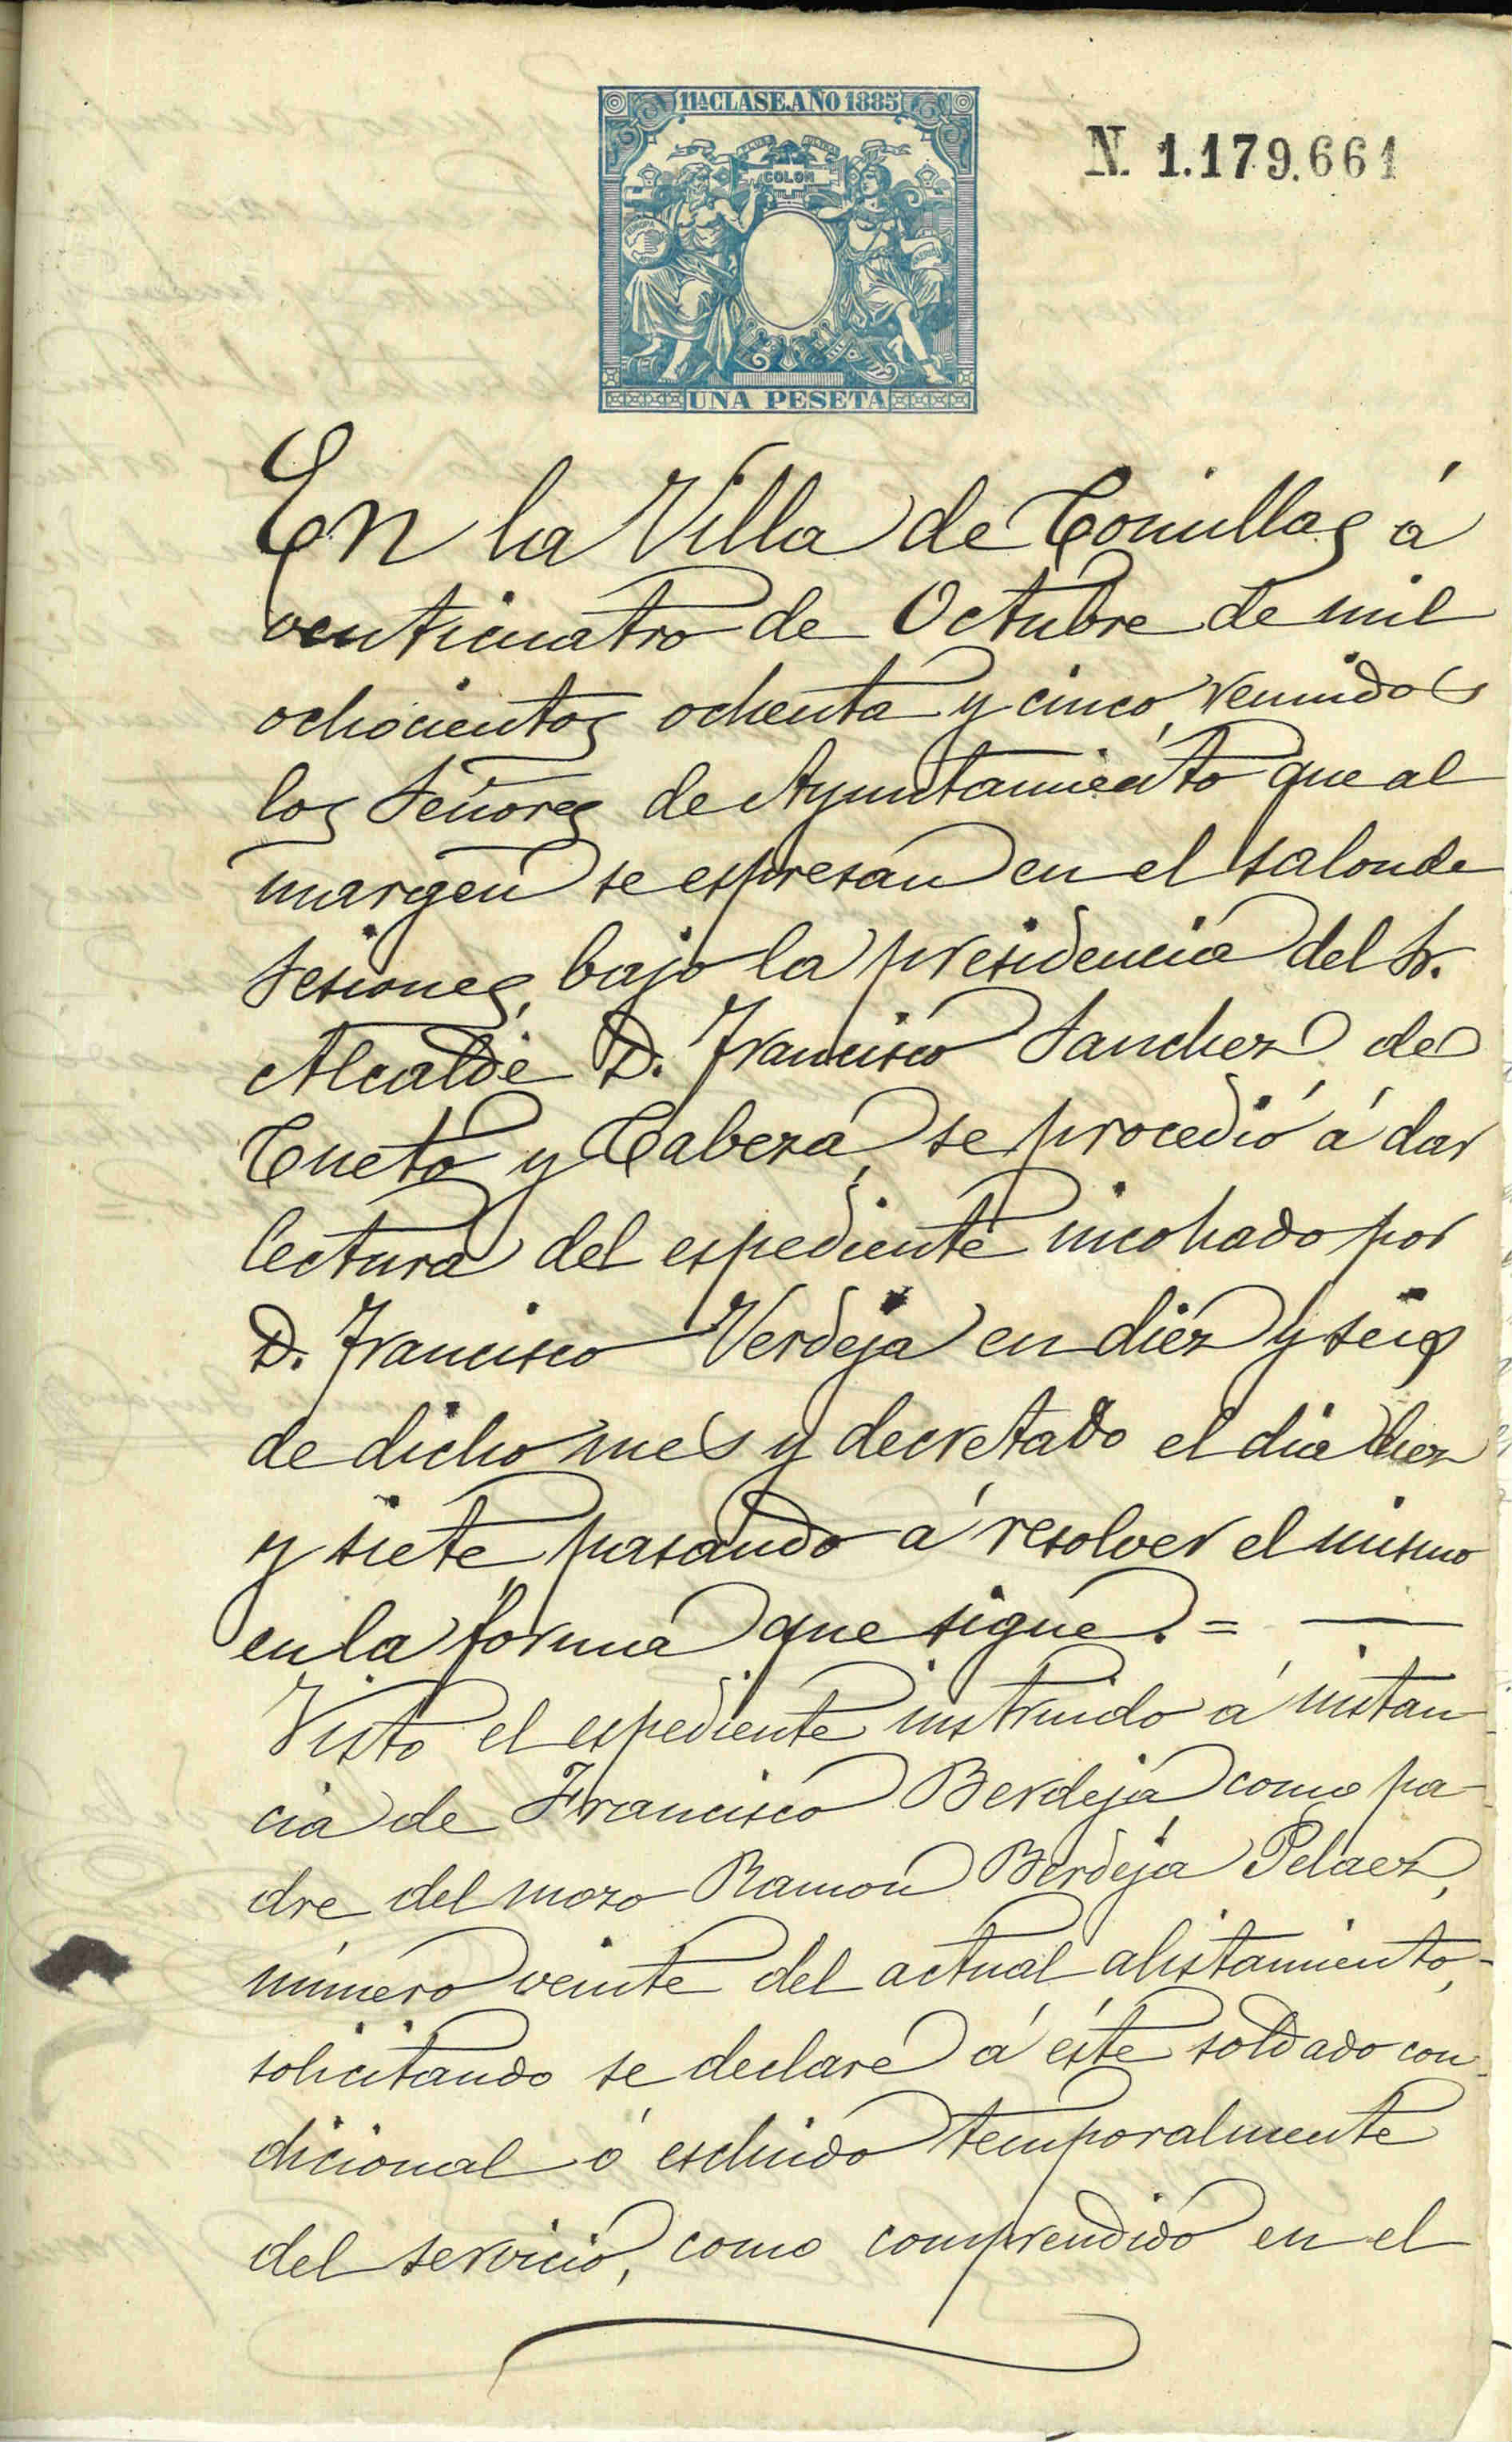 11ª CLASE. AÑO 1885
N. 1.179.661
PLUS ULTRA
COLON
EUROPA
UNA PESETA
En la Villa de Comillas á
venticuatro de Octubre de mil
ochocientos ochenta y cinco, reunidos
los Señores de Ayuntamiento que al
margen se espresan en el salon de
Sesiones, bajo la presidencia del Sr.
Alcalde D. Francisco Sanchez de
Cueto y Cabeza, se procedió á dar
lectura del espediente incohado por
D. Francisco Verdeja en diez y seis
de dicho mes y decretado el dia diez
y siete, pasando á resolver el mismo
en la forma que sigue. = —
Visto el espediente instruido á instan-
cia de Francisco Berdeja como pa-
dre del mozo Ramon Berdeja Pelaez,
número veinte del actual alistamiento,-
solicitando se declare á éste soldado con-
dicional ó escluido temporalmente
del servicio, como comprendido en el